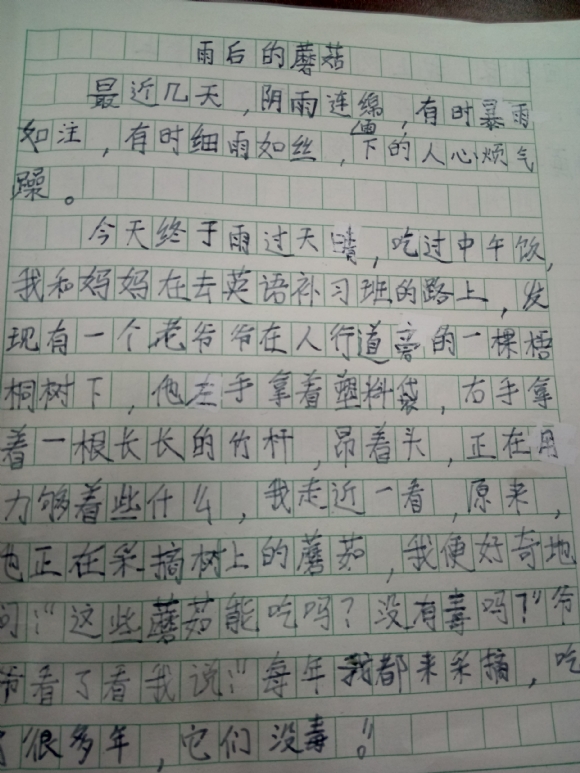 雨后的蘑菇
最近几天，阴雨连绵，有时暴雨
如注，有时细雨如丝，下的人心烦气
躁。
今天终于雨过天晴，吃过中午饭，
我和妈妈在去英语补习班的路上，发
现有一个老爷爷在人行道旁的一棵梧
桐树下，他左手拿着塑料袋，右手拿
着一根长长的竹杆，昂着头，正在用
力够着些什么，我走近一看，原来，
他正在采摘树上的蘑茹，我便好奇地
问：“这些蘑茹能吃吗？没有毒吗？”爷
爷看了看我说：“每年我都来采摘，吃
了很多年，它们没毒。”